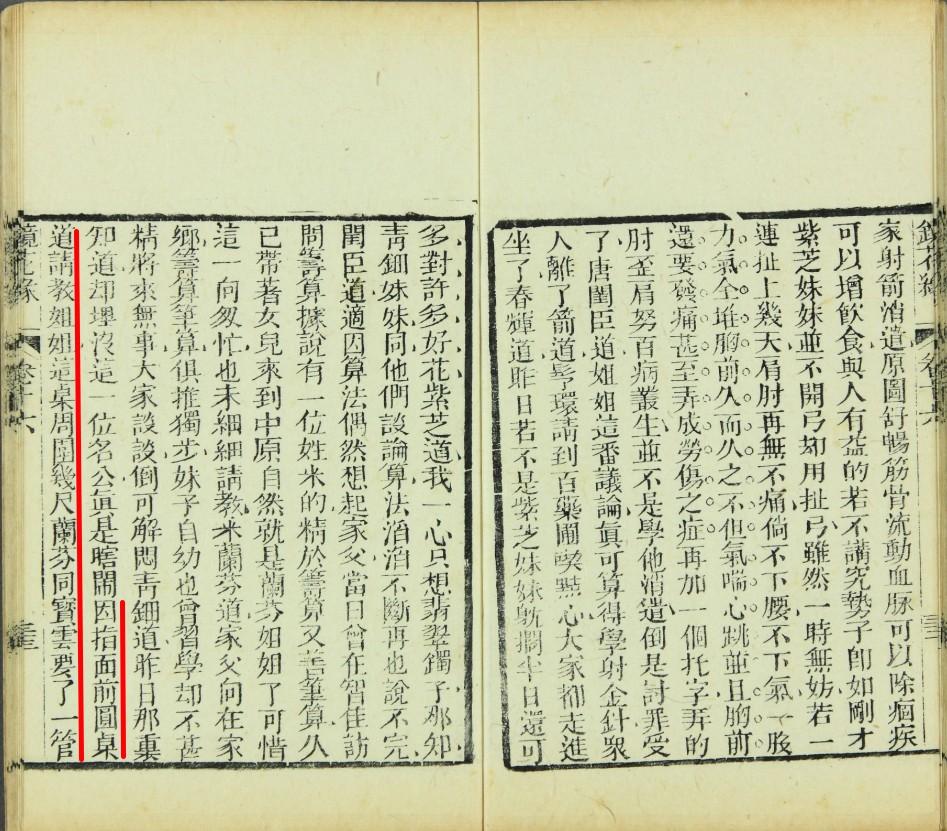 鏡花緣 卷十六 三三
家射箭消遣原圖舒暢筋骨流動血脈可以除痼疾
可以增飲食與人有益的若不講究勢子卽如剛才
紫芝妹妹並不開弓却用扯弓雖然一時無妨若一
連扯上幾天肩肘再無不痛倘不下腰不下氣一股
力氣全堆胸前久而久之不但氣喘心跳並且胸前
還要發痛甚至弄成勞傷之症再加一個托字弄的
肘歪肩努百病叢生並不是學他消遣倒是討罪受
了唐閨臣道姐姐這番議論眞可算得學射金針衆
人離了箭道丫環請到百藥圃喫㸃心大家都走進
坐了春輝道昨日若不是紫芝妹妹躭擱半日還可
多對許多好花紫芝道我一心只想翡翠鐲子那知
靑鈿妹妹同他們談論算法滔滔不斷再也說不完
閨臣道適因算法偶然想起家父當日曾在智佳訪
問籌算據說有一位姓米的精於籌算又善筆算久
已帶著女兒來到中原自然就是蘭芬姐姐了可惜
這一向匆忙也未細細請教米蘭芬道家父向在家
鄉籌算筆算俱推獨步妹子自幼也曾習學却不甚
精將來無事大家談談倒可解悶靑鈿道昨日那裏
知道却埋沒這一位名公眞是瞎鬧因指面前圓桌
道請教姐姐這桌周圍幾尺蘭芬同寶雲要了一管
鏡花緣 卷十六 三三